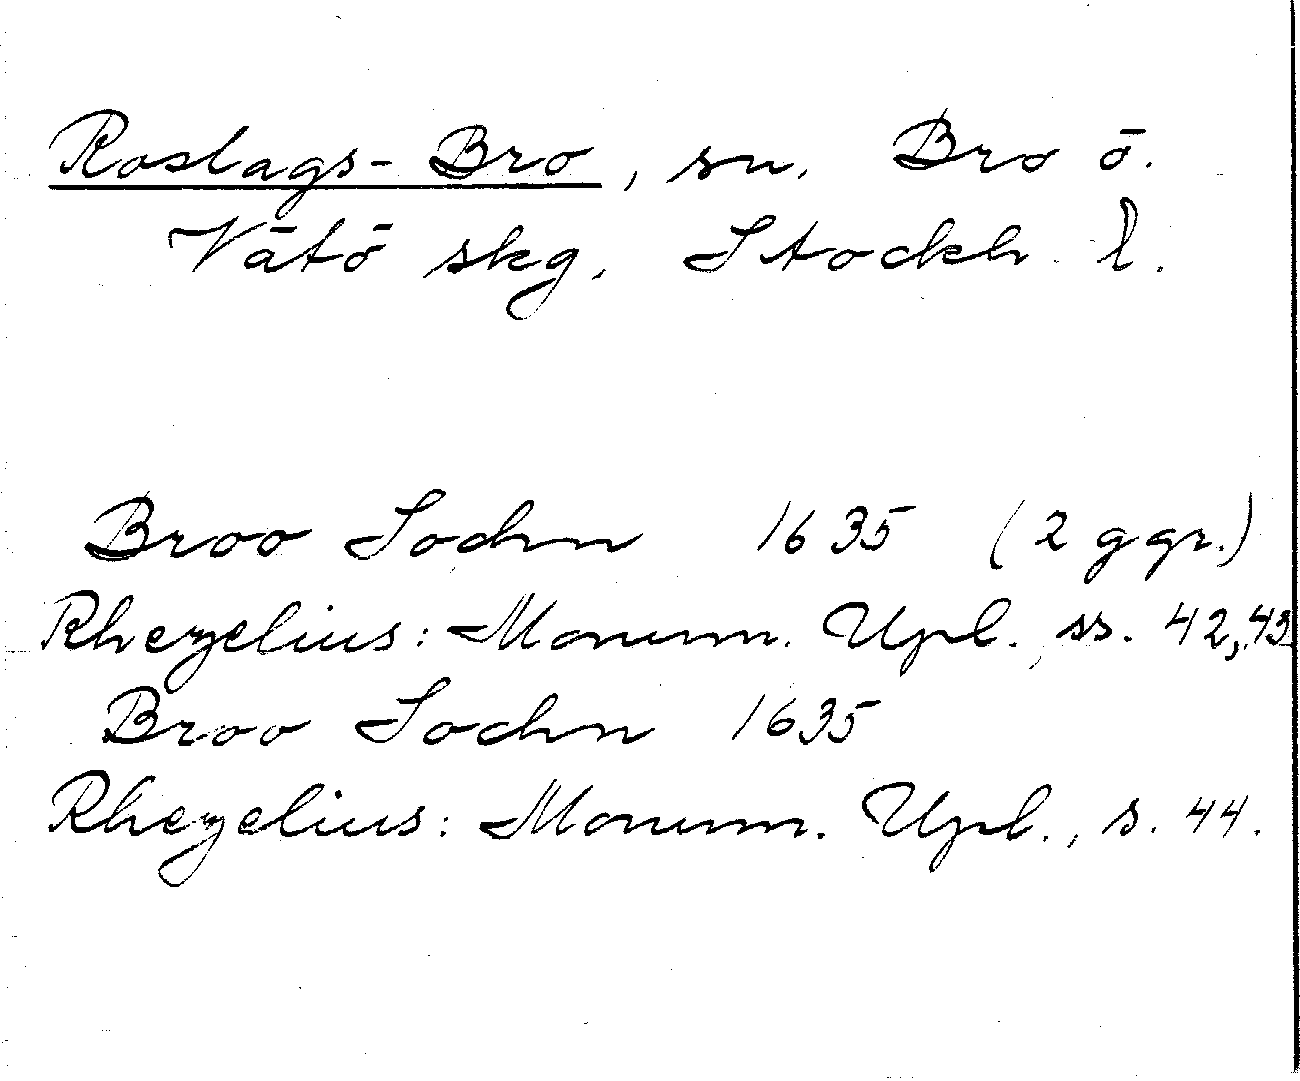 Roslags-Bro, sn. Bro ö.
Vätö skg. Stockh. l.
Broo Sochn 1635 (2 ggr.)
Rhezelius: Monum. Upl., ss. 42, 43
Broo Sochn 1635
Rhezelius: Monum. Upl., s. 44.